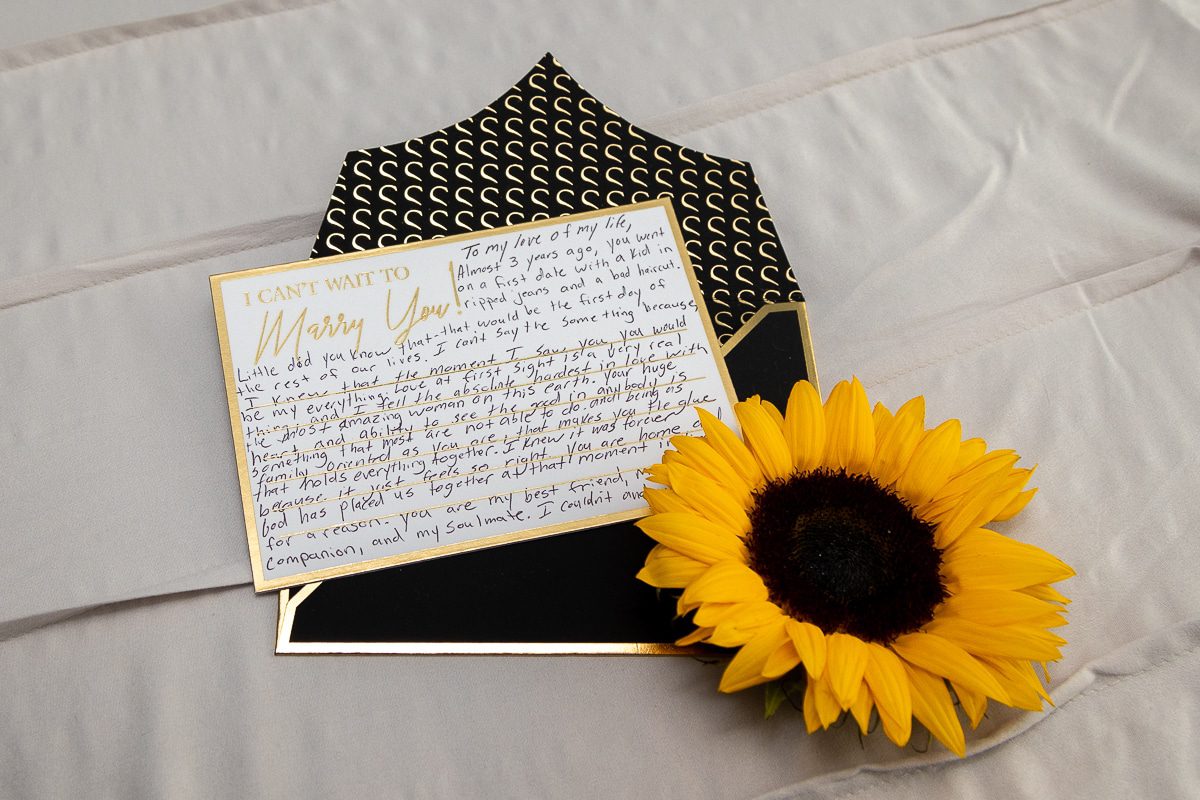 I CAN'T WAIT TO
Marry You!
To my love of my life,
Almost 3 years ago, you went
on a first date with a kid in
ripped jeans and a bad haircut.
Little did you know that-that would be the first day of
the rest of our lives. I can't say the something because,
I knew that the moment I saw you, you would
be my everything. Love at first sight is a very real
thing, and I fell the absolute hardest in love with
the most amazing woman on this earth. Your huge
heart and ability to see the good in anybody is
something that most are not able to do. and being as
family oriented as you are, that makes you the glue
that holds everything together. I knew it was forever
because it just feels so right. You are home,
God has placed us together at that moment
for a reason. You are my best friend,
companion, and my soulmate. I couldn't